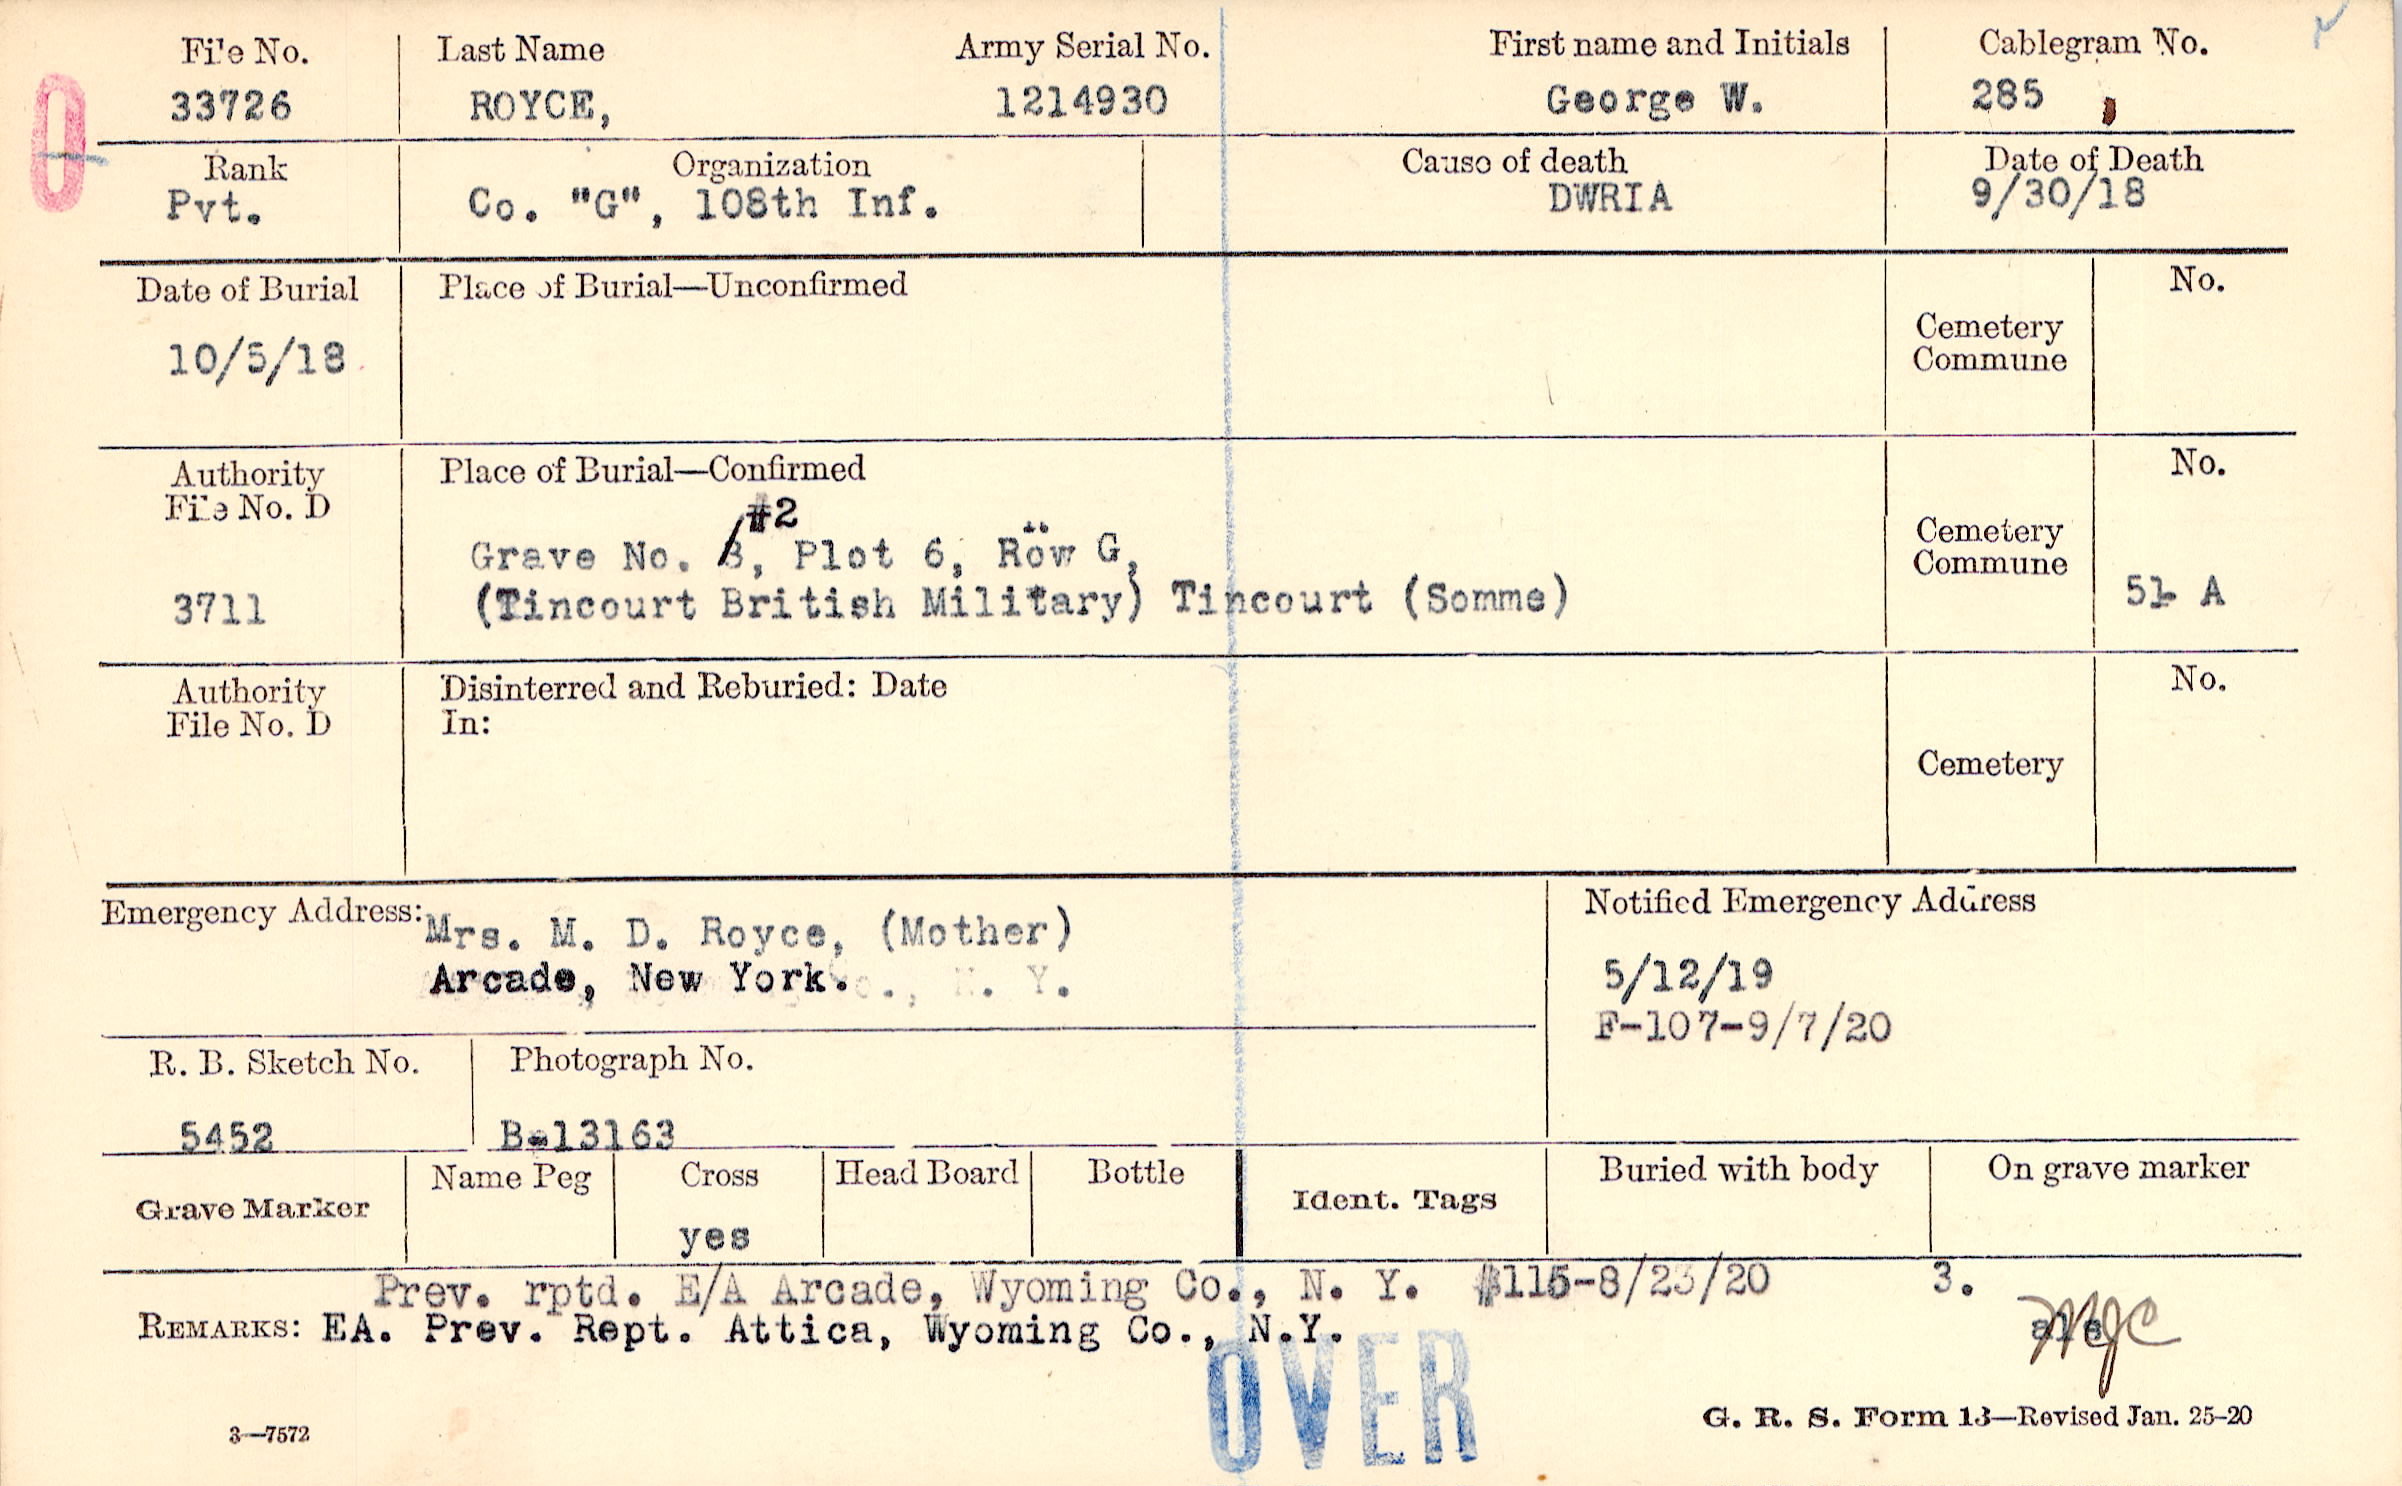 File No. Last Name Army Serial No. First name and Initials Cablegram No.
33726 ROYCE, 1214930 George W. 285
Rank Organization Cause of death Date of Death
Pvt. Co. "G", 108th Inf. DWRIA 9/30/18
Date of Burial Place of Burial—Unconfirmed No.
10/5/18 Cemetery
Commune
Authority Place of Burial—Confirmed No.
File No. D
#2
Grave No. 3, Plot 6, Row G, Cemetery
Commune
3711 (Tincourt British Military) Tincourt (Somme) 51 A
Authority Disinterred and Reburied: Date No.
File No. D In:
Cemetery
Emergency Address: Mrs. M. D. Royce, (Mother) Notified Emergency Address
Arcade, New York. 5/12/19
F-107-9/7/20
R. B. Sketch No. Photograph No.
5452 B-13163
Grave Marker Name Peg Cross Head Board Bottle Ident. Tags Buried with body On grave marker
yes
Prev. rptd. E/A Arcade, Wyoming Co., N. Y. #115-8/23/20 3.
REMARKS: EA. Prev. Rept. Attica, Wyoming Co., N.Y.
OVER
3—7572 G. R. S. Form 13—Revised Jan. 25-20